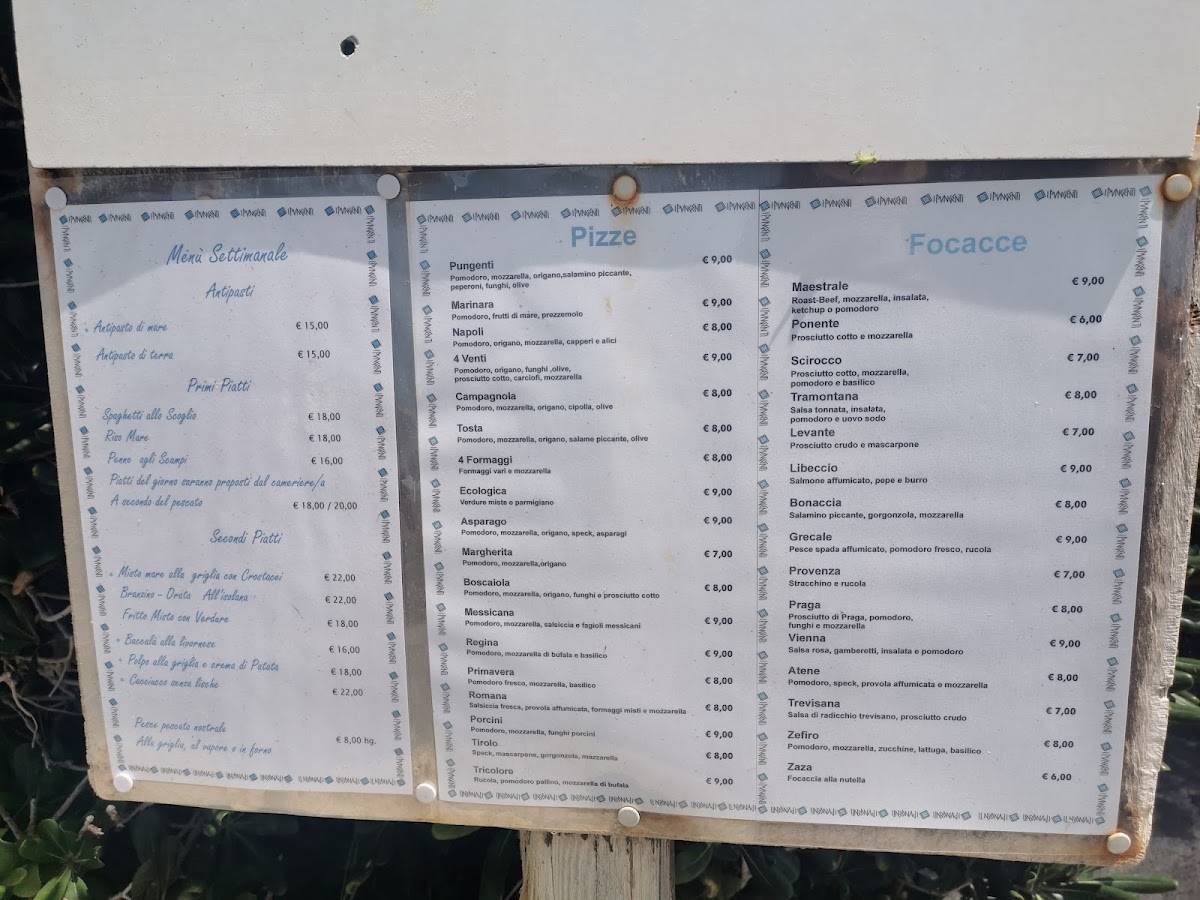 Menù Settimanale
Antipasti
Antipasto di mare € 15,00
Antipasto di terra € 15,00
Primi Piatti
Spaghetti allo Scoglio € 18,00
Riso Mare € 18,00
Penne agli Scampi € 16,00
Piatti del giorno saranno proposti dal cameriere/a
A secondo del pescato € 18,00 / 20,00
Secondi Piatti
Misto mare alla griglia con Crostacei € 22,00
Branzino - Orata All'isolana € 22,00
Fritto Misto con Verdure € 18,00
Baccalà alla livornese € 16,00
Polpo alla griglia e crema di Patata € 18,00
Cacciucco senza lische € 22,00
Pesce pescato nostrale
Alla griglia, al vapore o in forno € 8,00 hg.
Pizze
Pungenti € 9,00
Pomodoro, mozzarella, origano,salamino piccante,
peperoni, funghi, olive
Marinara € 9,00
Pomodoro, frutti di mare, prezzemolo
Napoli € 8,00
Pomodoro, origano, mozzarella, capperi e alici
4 Venti € 9,00
Pomodoro, origano, funghi ,olive,
prosciutto cotto, carciofi, mozzarella
Campagnola € 8,00
Pomodoro, mozzarella, origano, cipolla, olive
Tosta € 8,00
Pomodoro, mozzarella, origano, salame piccante, olive
4 Formaggi € 8,00
Formaggi vari e mozzarella
Ecologica € 9,00
Verdure miste e parmigiano
Asparago € 9,00
Pomodoro, mozzarella, origano, speck, asparagi
Margherita € 7,00
Pomodoro, mozzarella,origano
Boscaiola € 8,00
Pomodoro, mozzarella, origano, funghi e prosciutto cotto
Messicana € 9,00
Pomodoro, mozzarella, salsiccia e fagioli messicani
Regina € 9,00
Pomodoro, mozzarella di bufala e basilico
Primavera € 8,00
Pomodoro fresco, mozzarella, basilico
Romana € 8,00
Salsiccia fresca, provola affumicata, formaggi misti e mozzarella
Porcini € 9,00
Pomodoro, mozzarella, funghi porcini
Tirolo € 8,00
Speck, mascarpone, gorgonzola, mozzarella
Tricolore € 9,00
Rucola, pomodoro pallino, mozzarella di bufala
Focacce
Maestrale € 9,00
Roast-Beef, mozzarella, insalata,
ketchup o pomodoro
Ponente € 6,00
Prosciutto cotto e mozzarella
Scirocco € 7,00
Prosciutto cotto, mozzarella,
pomodoro e basilico
Tramontana € 8,00
Salsa tonnata, insalata,
pomodoro e uovo sodo
Levante € 7,00
Prosciutto crudo e mascarpone
Libeccio € 9,00
Salmone affumicato, pepe e burro
Bonaccia € 8,00
Salamino piccante, gorgonzola, mozzarella
Grecale € 9,00
Pesce spada affumicato, pomodoro fresco, rucola
Provenza € 7,00
Stracchino e rucola
Praga € 8,00
Prosciutto di Praga, pomodoro,
funghi e mozzarella
Vienna € 9,00
Salsa rosa, gamberetti, insalata e pomodoro
Atene € 8,00
Pomodoro, speck, provola affumicata e mozzarella
Trevisana € 7,00
Salsa di radicchio trevisano, prosciutto crudo
Zefiro € 8,00
Pomodoro, mozzarella, zucchine, lattuga, basilico
Zaza € 6,00
Focaccia alla nutella